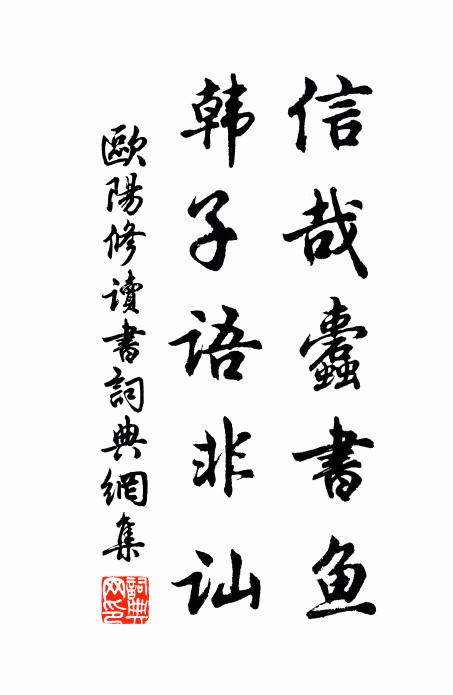 信哉蠹書鱼
韩子語非訕
歐陽修讀書詞典網集
詞典
网印